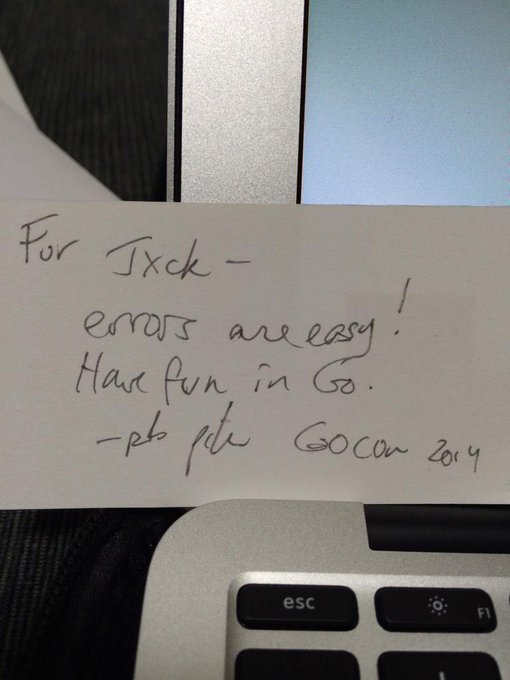 For Jxck -
errors are easy!
Have fun in Go.
- rob pike GoCon 2014
esc
F1